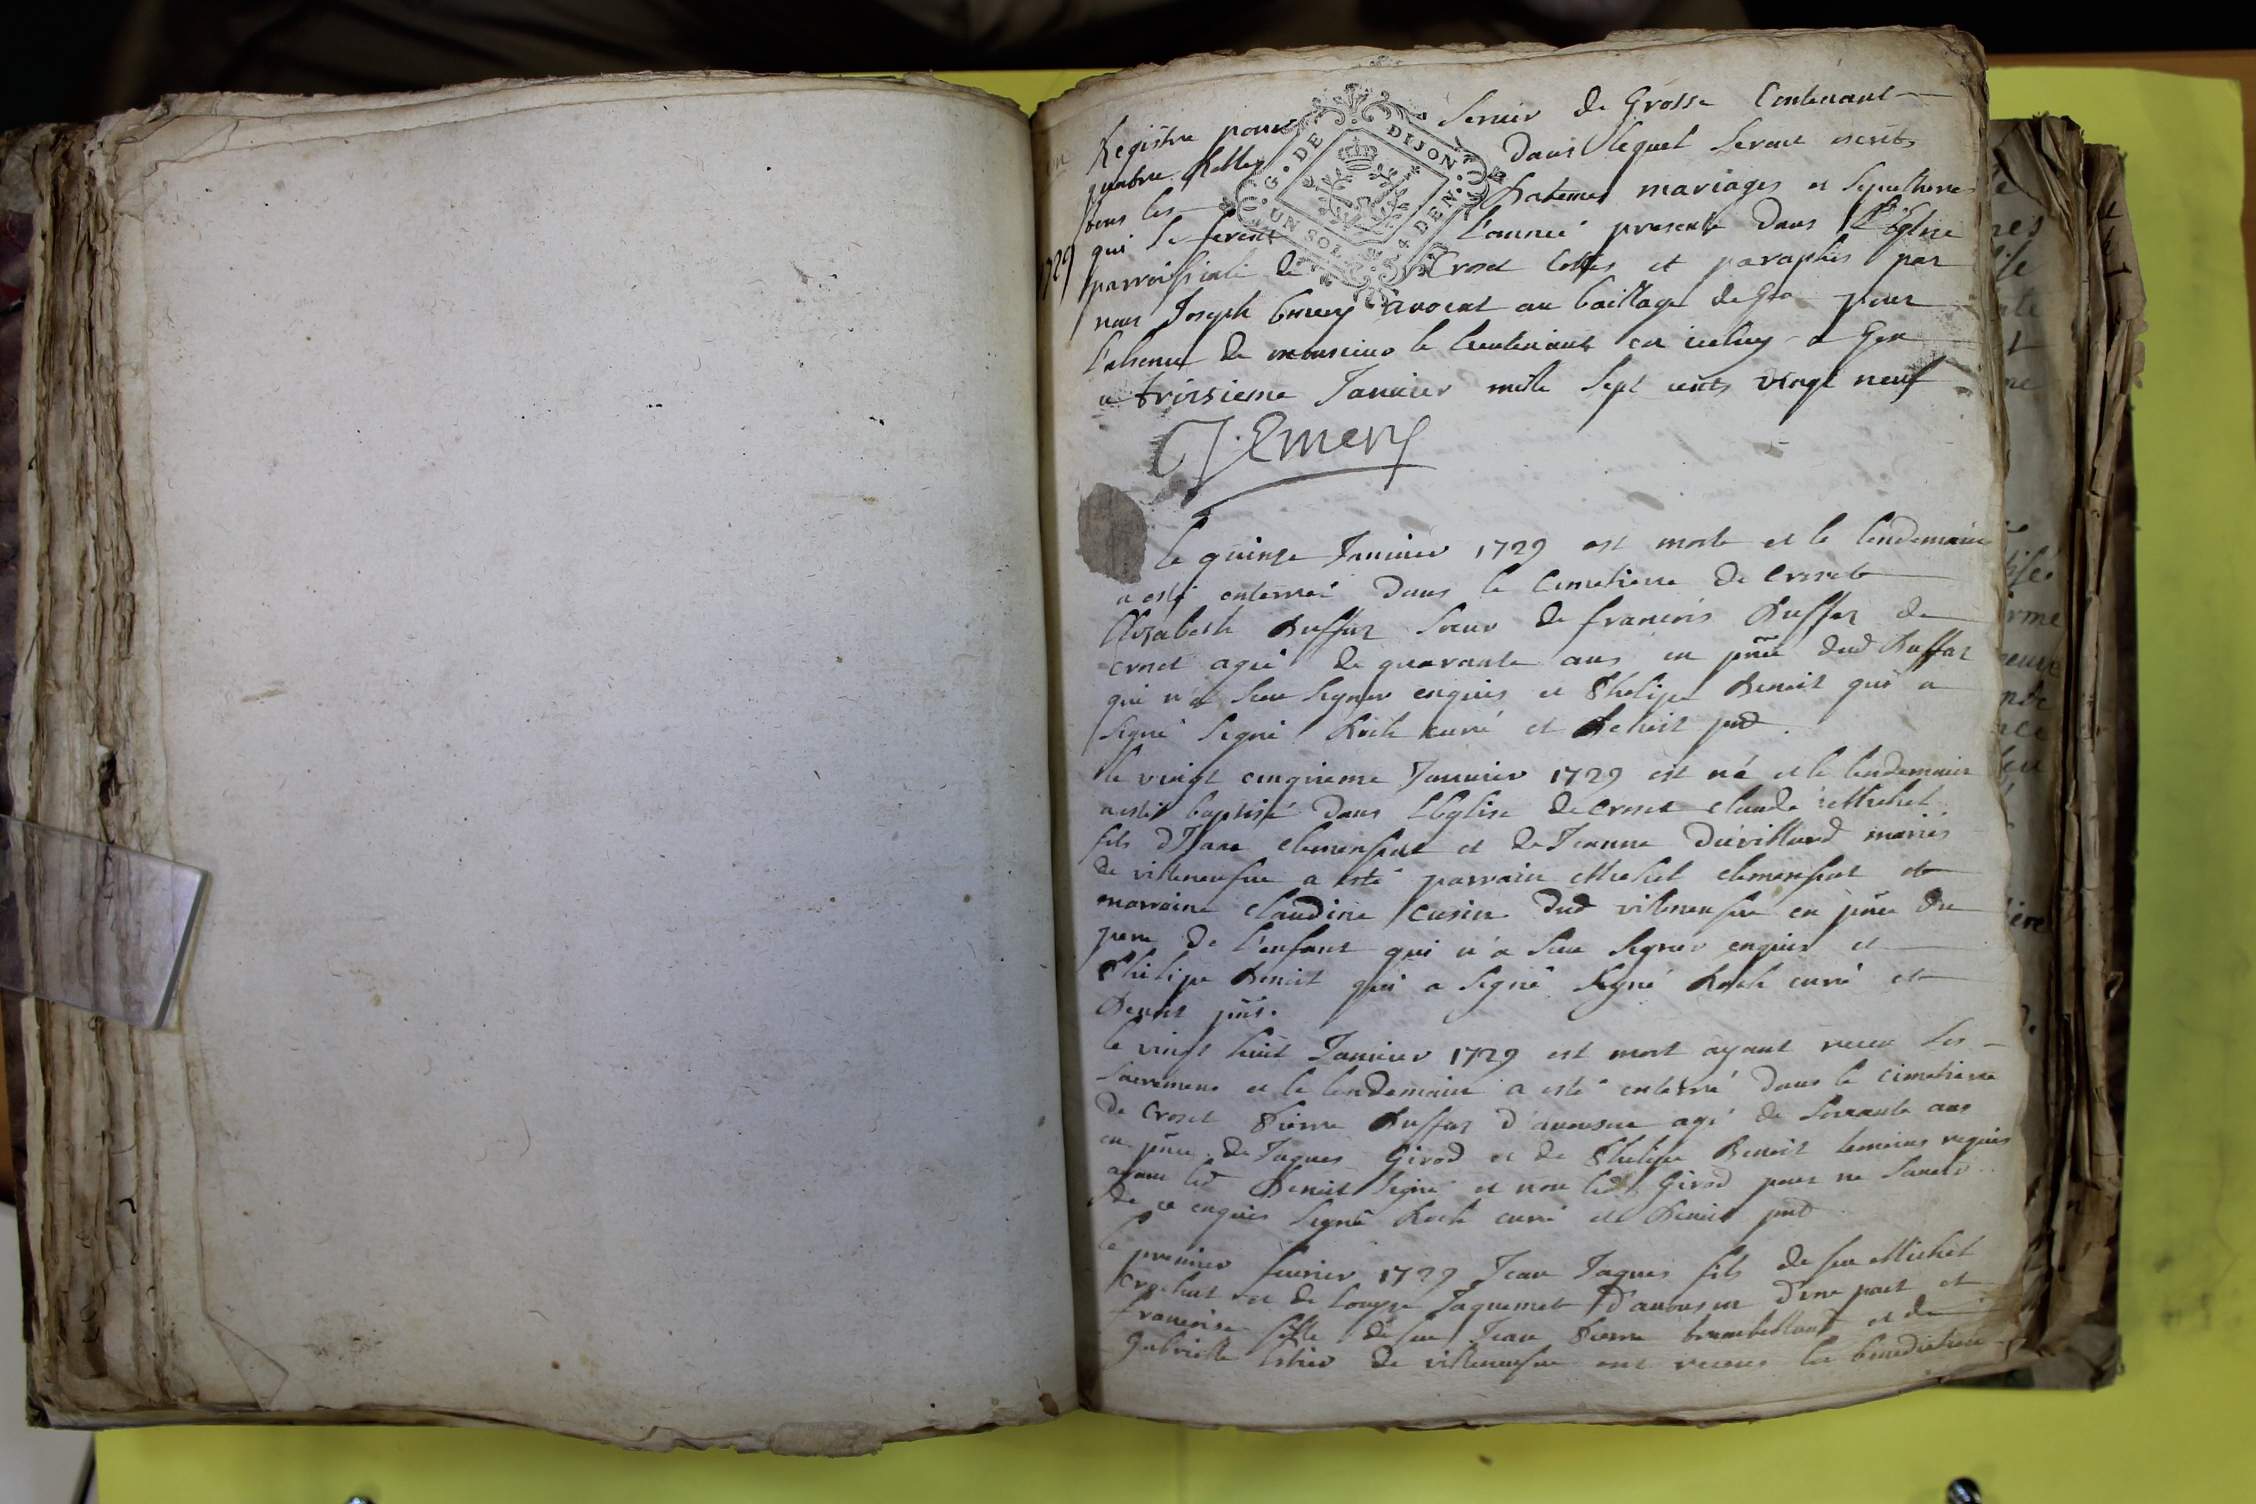 Registre pour servir de Grosse Contenant
quatre dans lequel seront escrits
tous les Batemes mariages et sepultures
qui se feront l'année presente dans l'Eglise
parroissiale de Croset Cottés et paraphés par
nous Joseph Emery avocat au bailliage de Gex pour
l'absence de monsieur le lieutenant en iceluy a Gex
ce troisieme Janvier mille sept cents vingt neuf
J. Emery
G. DE DIJON
UN SOL 4 DEN.
1729
le quinze Janvier 1729 est morte et le lendemain
a esté enterrée dans le Cimetiere de Croset
Elizabeth Buffaz soeur de francois Buffaz de
Croset agée de quarante ans en pñce dud Buffaz
qui n'a sceu signer enquis et Philipe Benoit qui a
signé signé Roch curé et Benoit pñt
le vingt cinquieme Janvier 1729 est né et le lendemain
a esté baptisé dans l'Eglise de Croset Claude Michel
fils d'Isaac et de Jeanne Duvillard mariés
de villeneufve a esté parrain Michel et
marraine Claudine Cusin dud villeneufve en pñce du
pere de l'enfant qui n'a sceu signer enquis et
Philipe Benoit qui a signé signé Roch curé et
Benoit pñt.
le vingt huit Janvier 1729 est mort ayant receu les
sacremens et le lendemain a esté enterré dans le cimetiere
de Croset Pierre Buffaz d'avouson agé de ans
en pñce de Jaques Girod et de Philipe Benoit temoins requis
ayant led Benoit signé et non led Girod pour ne savoir
de ce enquis signé Roch curé et Benoit pñt
le premier fevrier 1729 Jean Jaques fils de feu Michel
et de Jaquemet d'avouson d'une part et
francoise fille de feu Jean Pierre et de
Gabrielle de villeneufve ont receus la benediction